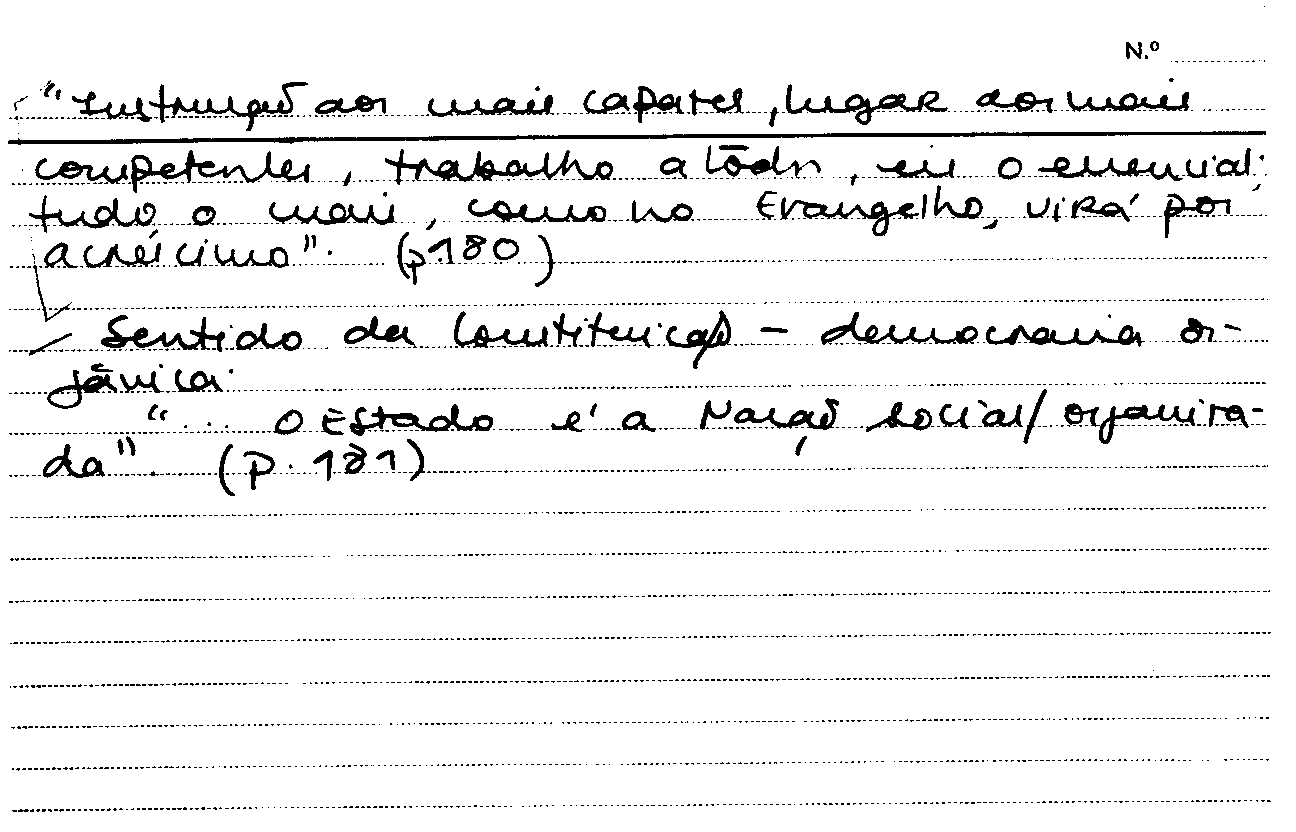 N.º
"Instrução aos mais capazes, lugar aos mais
competentes, trabalho a todos, eis o essencial;
tudo o mais, como no Evangelho, virá por
acréscimo". (p 180)
Sentido da Constituição – democracia or-
gânica:
"... O Estado é a Nação social/ organiza-
da". (p. 181)